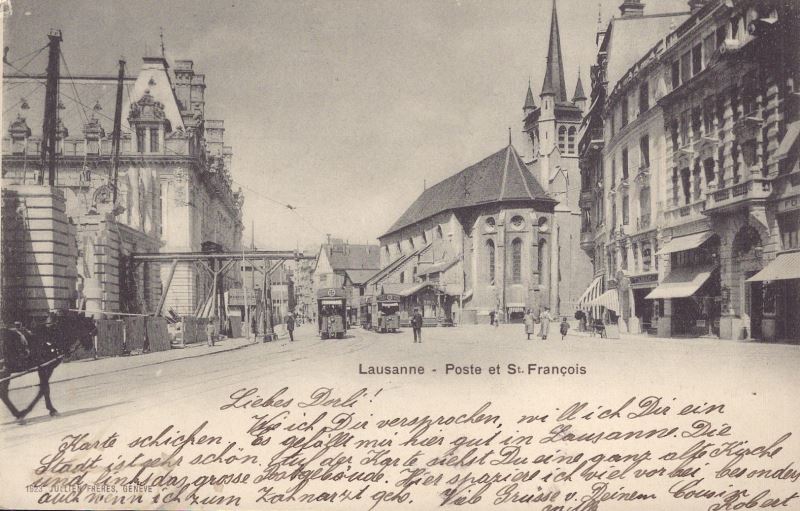 Lausanne - Poste et St. François
Liebes Dorli!
Wie ich Dir versprochen, will ich Dir ein
Karte schicken. Es gefällt mir hier gut in Lausanne. Die
Stadt ist sehr schön. Auf der Karte siehst Du eine ganz alte Kirche
und links das grosse Postgebäude. Hier spaziere ich viel vorbei besonders
auch wenn ich zum Zahnarzt geh. Viele Grüsse v. Deinem Cousin
Robert
1523 JULLIEN FRÈRES, GENÈVE